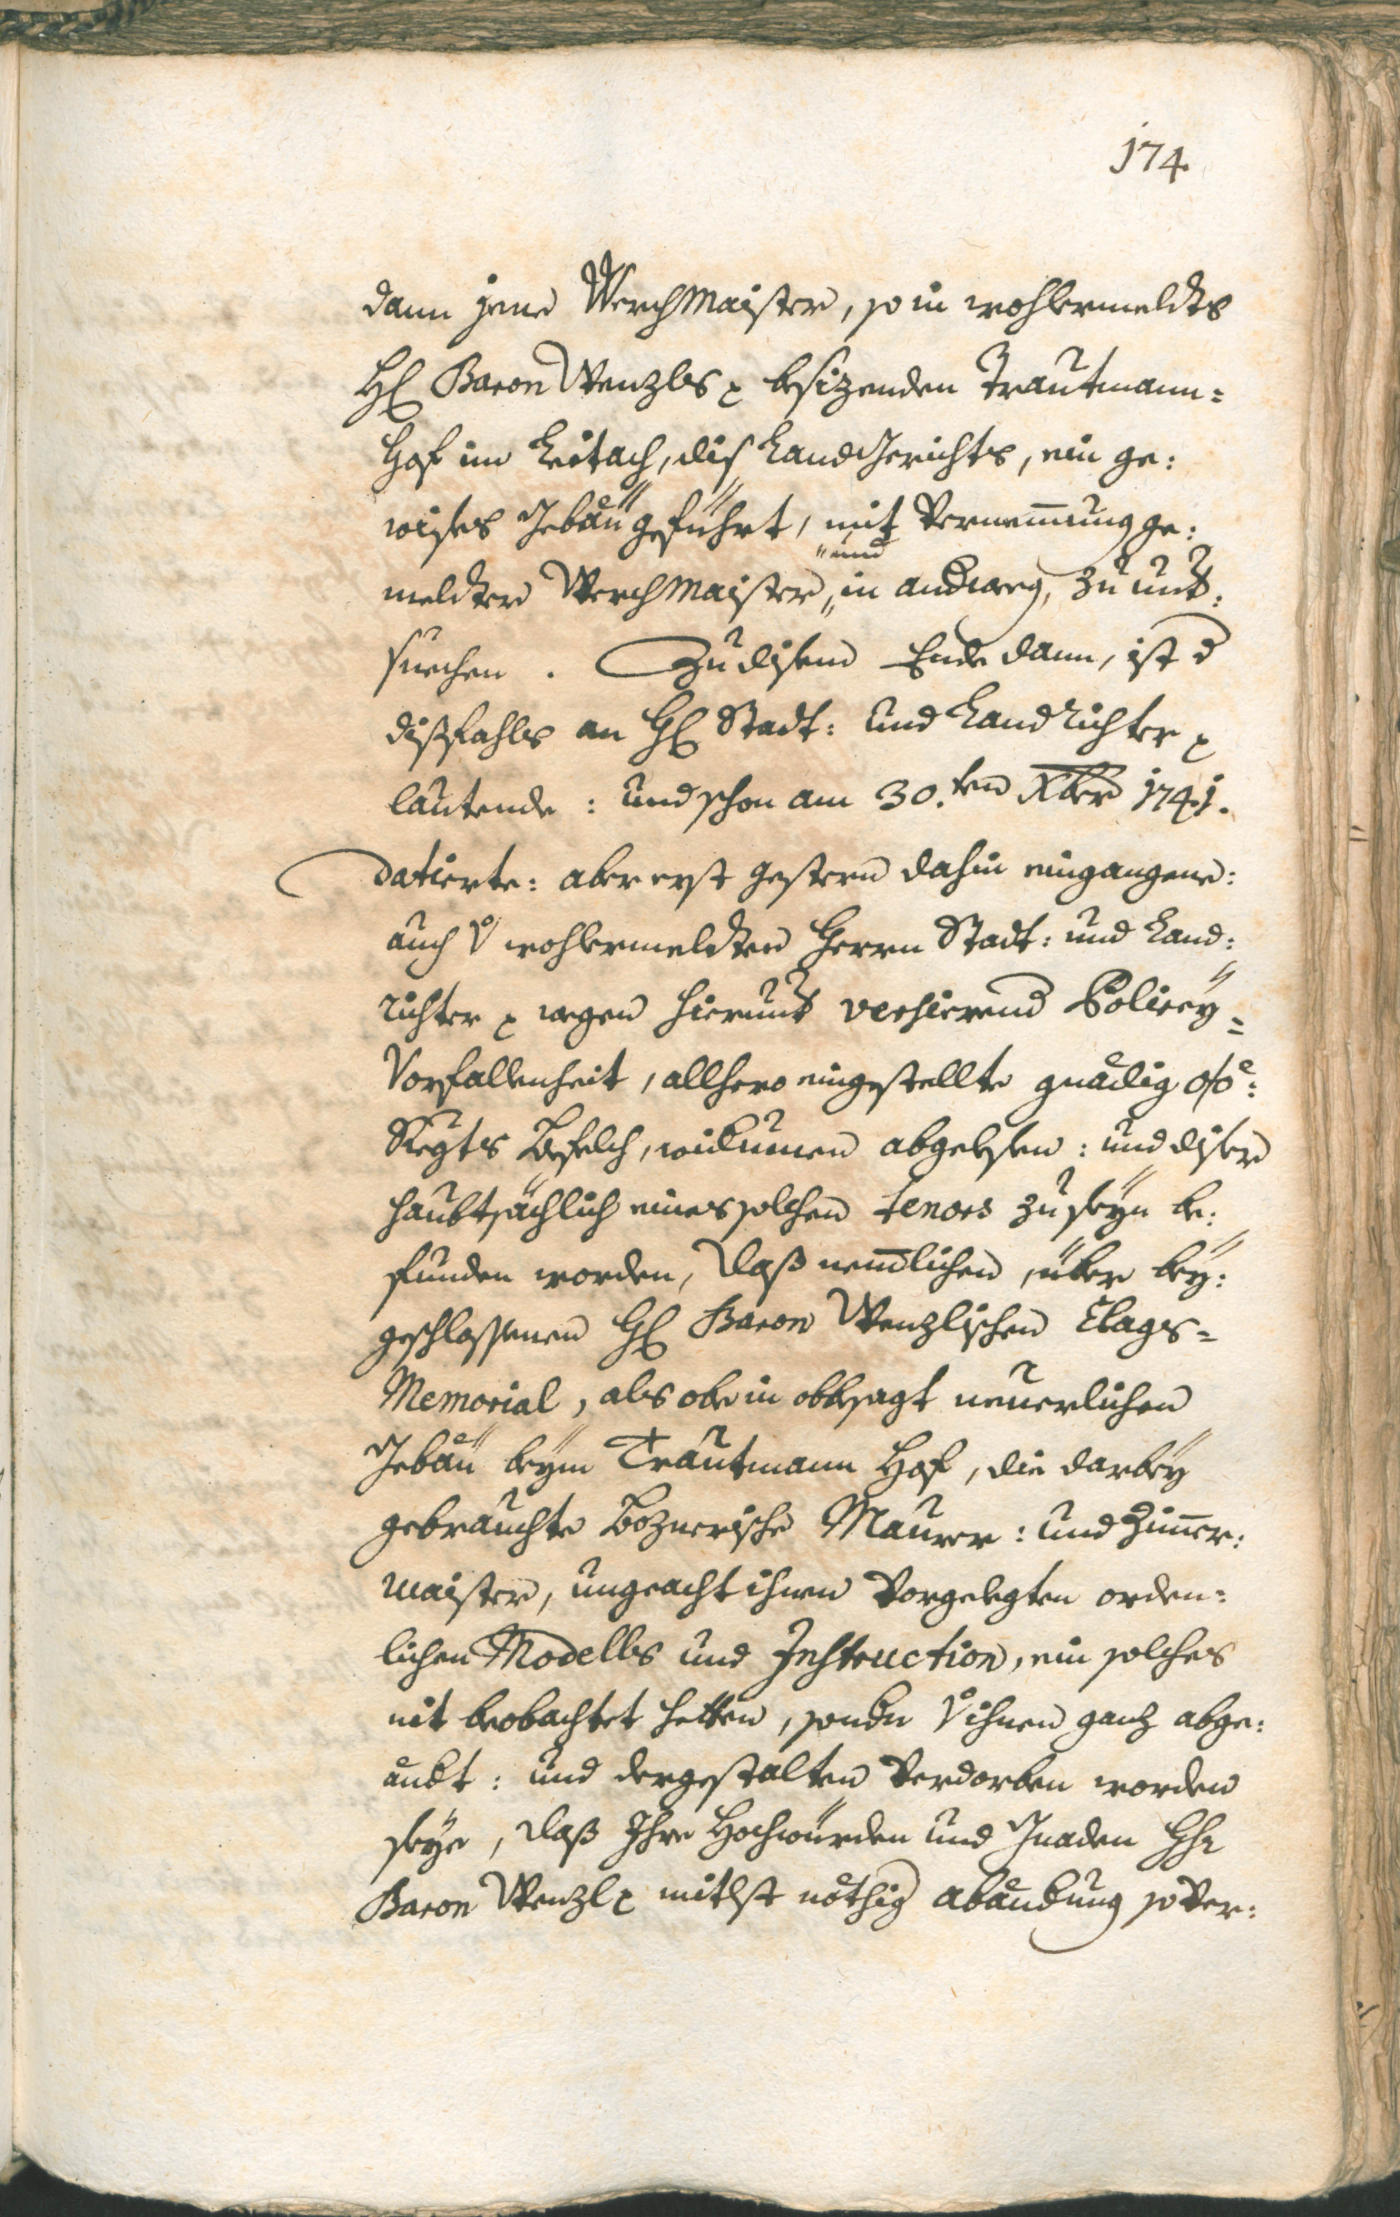 174.
dann jene Werchmaister, so in wohlermeldts
H: Baron Wenzls besizenden Trautmann=
Hof im Leitach, diß Landgerichts, ein ge:
wises Gebäu gefüehrt, mit Vernemmung ge:
meldter Werchmaister, und in andweg, zu unt:
suechen. Zu disem Ende dann, ist d
dißfahls an H: Stadt: und Landrichter
lautende: und schon am 30.ten Xber 1741.
datierte: aber erst gestern dahin eingangene:
auch v wohlermeldten Herrn Stadt: und Land:
richter wegen hierunt versierend Policey=
Vorfallenheit, allhero eingestellte gnädig
Befelch, widumen abgelesen: und diser
haubtsächlich eines solchen tenors zu seyn be:
funden worden, daß nemmlichen, über bey:
geschlossenen H: Baron Wenzlischen Clags=
Memorial, als obe in obbesagt neuerlichen
Gebäu beym Trautmann Hof, die darbey
gebrauchte Boznerische Maurer: und Zimmer:
maister, ungeacht ihnen vorgelegten orden:
lichen Modells und Instruction, ein solches
nit beobachtet hetten, sondn v ihnen ganz abge:
ändt: und dergestalten verdorben worden
seye, daß Ihre Hochwürden und Gnaden Hr
Baron Wenzl mitlst nöthig abändung so ver: